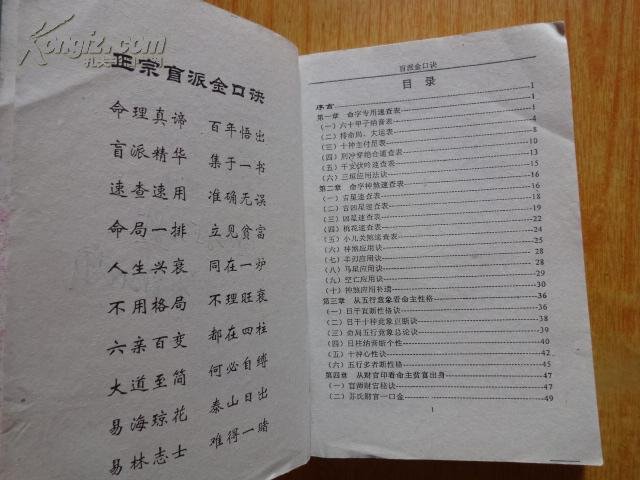 Kongfz.com
正宗盲派金口诀
命理真谛 百年悟出
盲派精华 集于一书
速查速用 准确无误
命局一排 立见贫富
人生兴衰 同在一炉
不用格局 不理旺衰
六亲百变 都在四柱
大道至简 何必自缚
易海琼花 泰山日出
易林志士 难得一睹
盲派金口诀
目录
序言 1
第一章 命字专用速查表 1
(一)六十甲子纳音表 1
(二)排命局、大运表 2
(三)十神主付星表 9
(四)刑冲穿绝合墓速查表 13
(五)干支伏吟速查表 15
(六)三垣应用法诀 16
第二章 命字神煞速查表 16
(一)吉星速查表 16
(二)吉凶星速查表 19
(三)凶星速查表 22
(四)桃花速查表 24
(五)小儿关煞速查表 25
(六)神煞应用诀 28
(七)羊刃应用诀 28
(八)马星应用诀 29
(九)空亡应用诀 29
(十)神煞应用补遗 30
第三章 从五行意象看命主性格 36
(一)日干直断性格诀 36
(二)日干十神意象直断诀 38
(三)命局五行意象总论诀 39
(四)日柱纳音断个性 40
(五)十神心性诀 42
(六)五行多者断性格 45
第四章 从财官印看命主贫富出身 47
(一)官师财官秘诀 47
(二)苏氏财官一口金 49
1